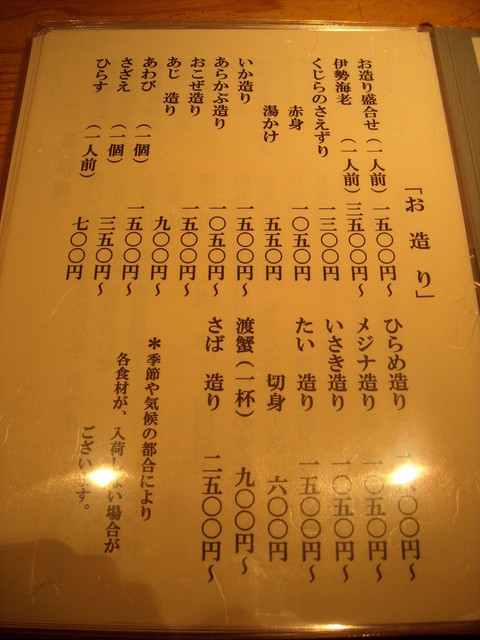 「お造り」
お造り盛合せ（一人前）一五〇〇円〜
伊勢海老（一人前）三五〇〇円〜
くじらのさえずり 一三〇〇円
赤身 一〇五〇円
湯かけ 五五〇円
いか造り 一五〇〇円〜
あらかぶ造り 一〇五〇円〜
おこぜ造り 一五〇〇円〜
あじ 造り 九〇〇円〜
あわび（一個）一五〇〇円〜
さざえ（一個）三五〇円〜
ひらす（一人前）七〇〇円
ひらめ造り
メジナ造り 一〇五〇円〜
いさき造り 一〇五〇円〜
たい 造り 一五〇〇円〜
切身 六〇〇円
渡蟹（一杯）九〇〇円〜
さば 造り 二五〇〇円〜
＊季節や気候の都合により
各食材が、入荷しない場合が
ございます。